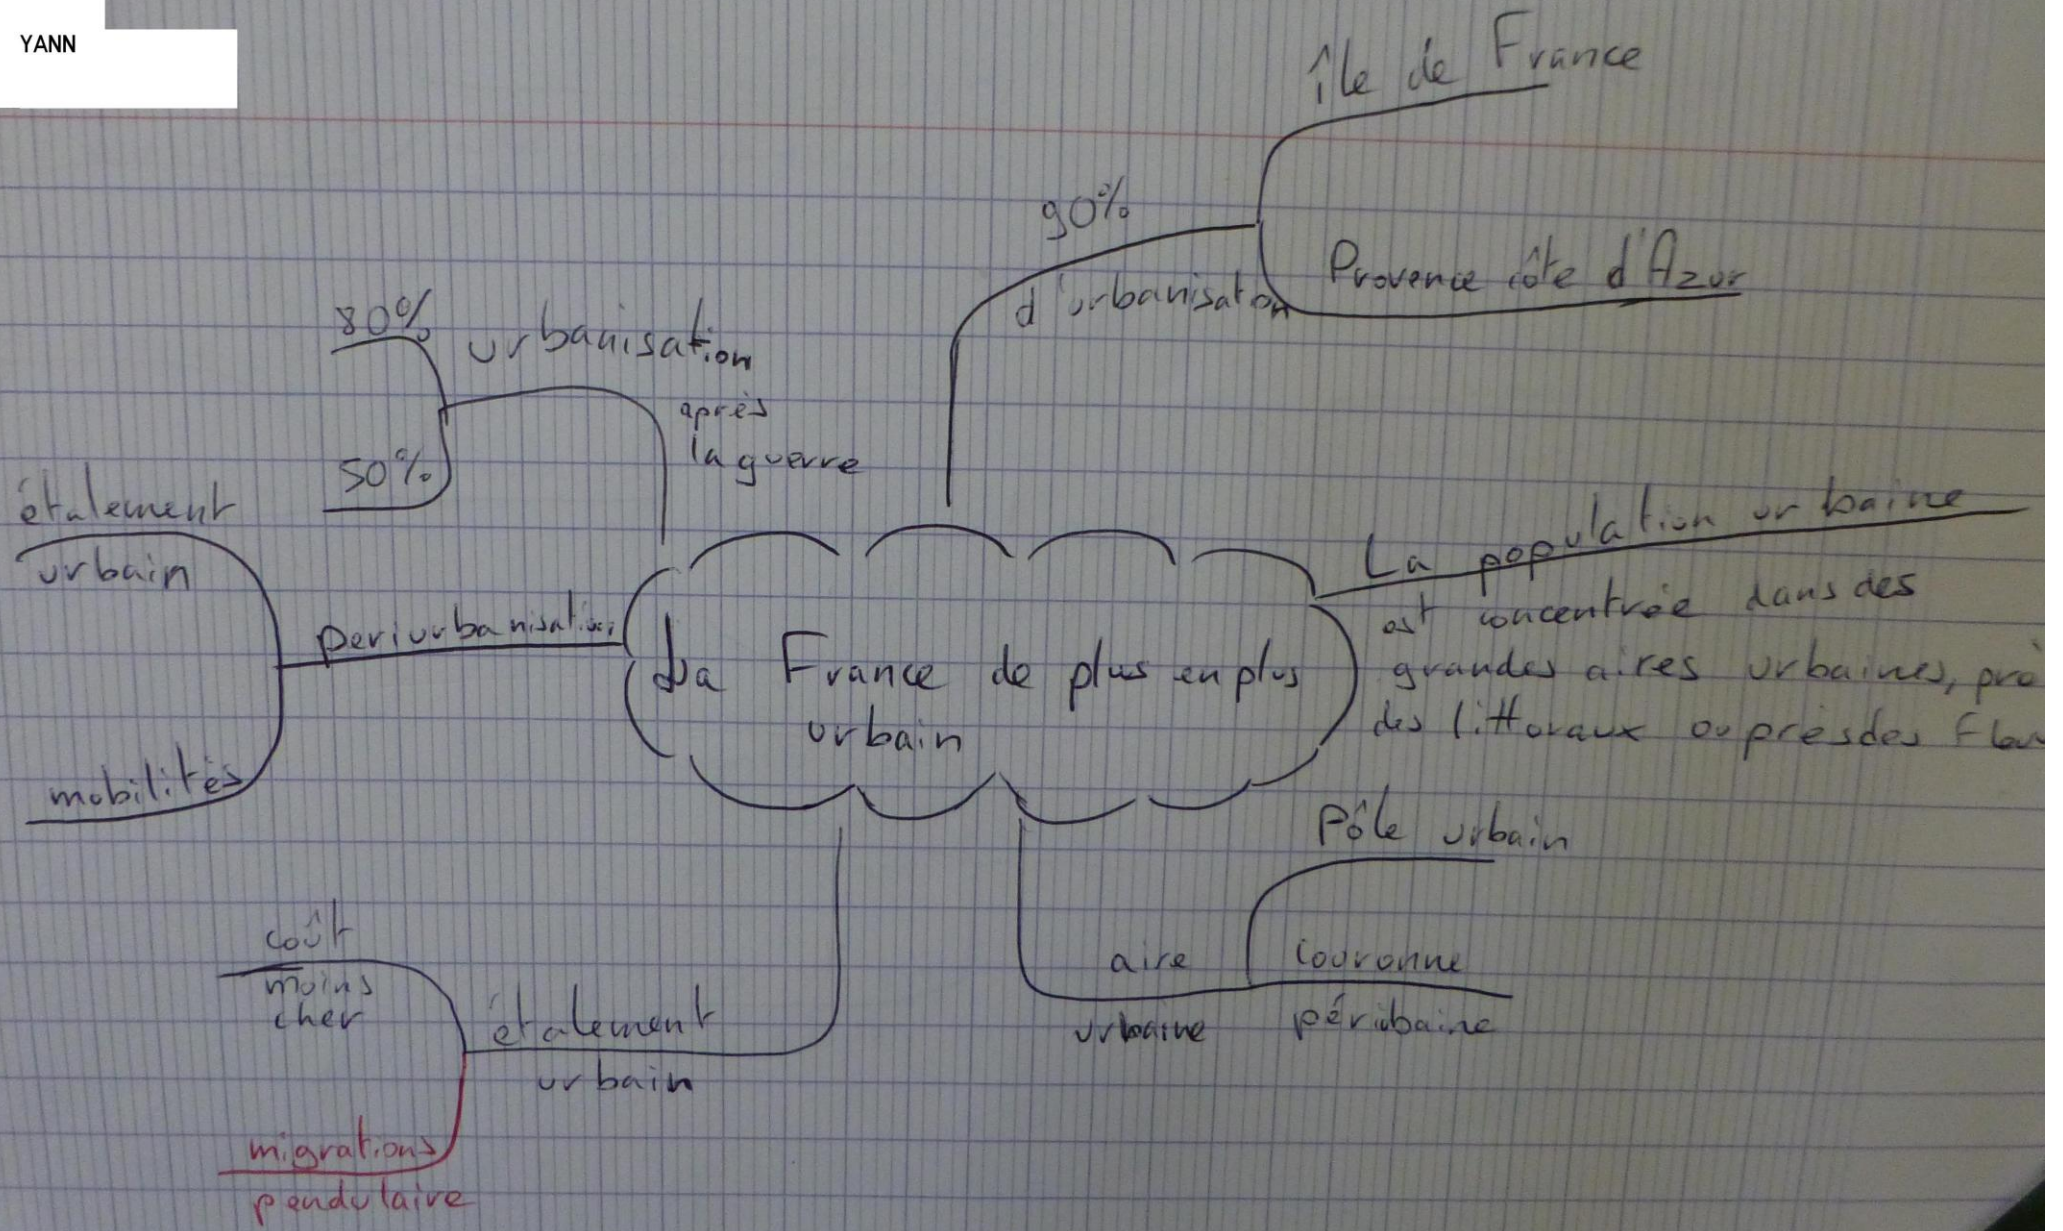 YANN
île de France
90%
d'urbanisation
Provence côte d'Azur
80%
urbanisation
après
la guerre
50%
étalement
urbain
periurbanisation
mobilités
La France de plus en plus
urbain
La population urbaine
est concentrée dans des
grandes aires urbaines, prè
des littoraux ou près des
Pôle urbain
aire
urbaine
couronne
péribaine
coût
moins
cher
étalement
urbain
migrations
pendulaire